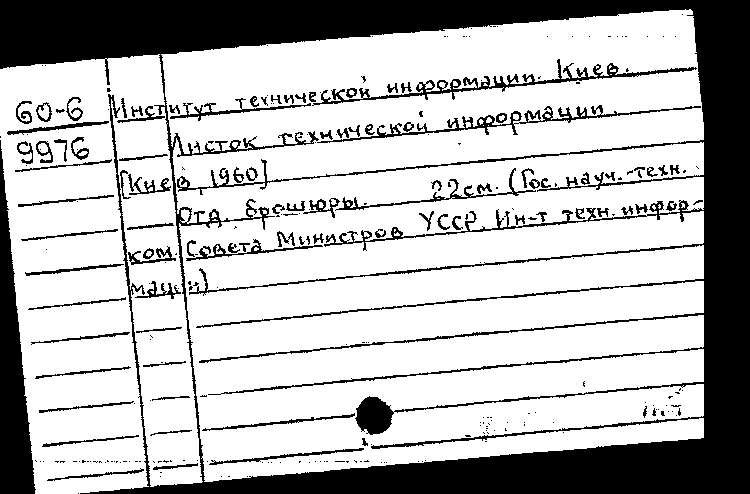 60-6 Институт технической информации. Киев.
9976 Листок технической информации.
[Киев, 1960]
Отд. брошюры. 22см. (Гос. науч.-техн.
ком. Совета Министров УССР. Ин-т техн. инфор-
мации)